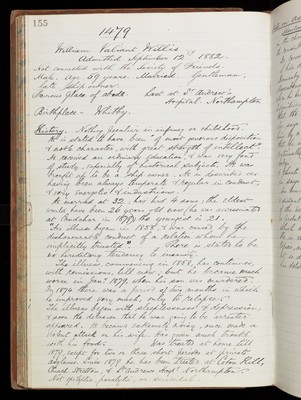 155
1479
William Valiant Willis
Admitted September 12th 1882.
Not connected with the Society of Friends.
Male. Age 59 years. Married. Gentleman,
late Ship owner.
Previous place of abode. Last at St. Andrew's
Hospital. Northampton
Birthplace - Whitby.
History. Nothing peculiar in infancy or childhood.
He is stated to have been "of most nervous disposition
& noble character, with great strength of intellect."
He received an ordinary Education, & was very fond
of study, especially of historical subjects. He was
brought up to be a ship owner. He is described as
having been always temperate & regular in conduct,
& very energetic & industrious.
He married at 32; has had 4 sons; the eldest
would have been 26 years old now, he was assassinated
at in 1879; the youngest is 21.
This illness began in 1858, & was caused by "the
dishonourable conduct of a relation whom he
implicitly trusted." There is stated to be
no hereditary tendency to insanity.
The illness, commencing in 1858, has continued,
with remissions, till now; but he became much
worse in Jany 1879, when his son was murdered.
In 1876 there was a period of two months in which
he improved very much, only to relapse.
The illness began with sleeplessness & depression,
& soon the delusion that he was going to be arrested
appeared. He became extremely angry, once made a
violent attack on his wife. Has given much trouble
with his food. Was treated at home till
1879, except for two or three short periods at private
asylums. Since 1879 he has been treated at Cotton Hill,
Church Stretton, & St Andrews Hospl Northampton.
Not epileptic, paralytic, or suicidal.